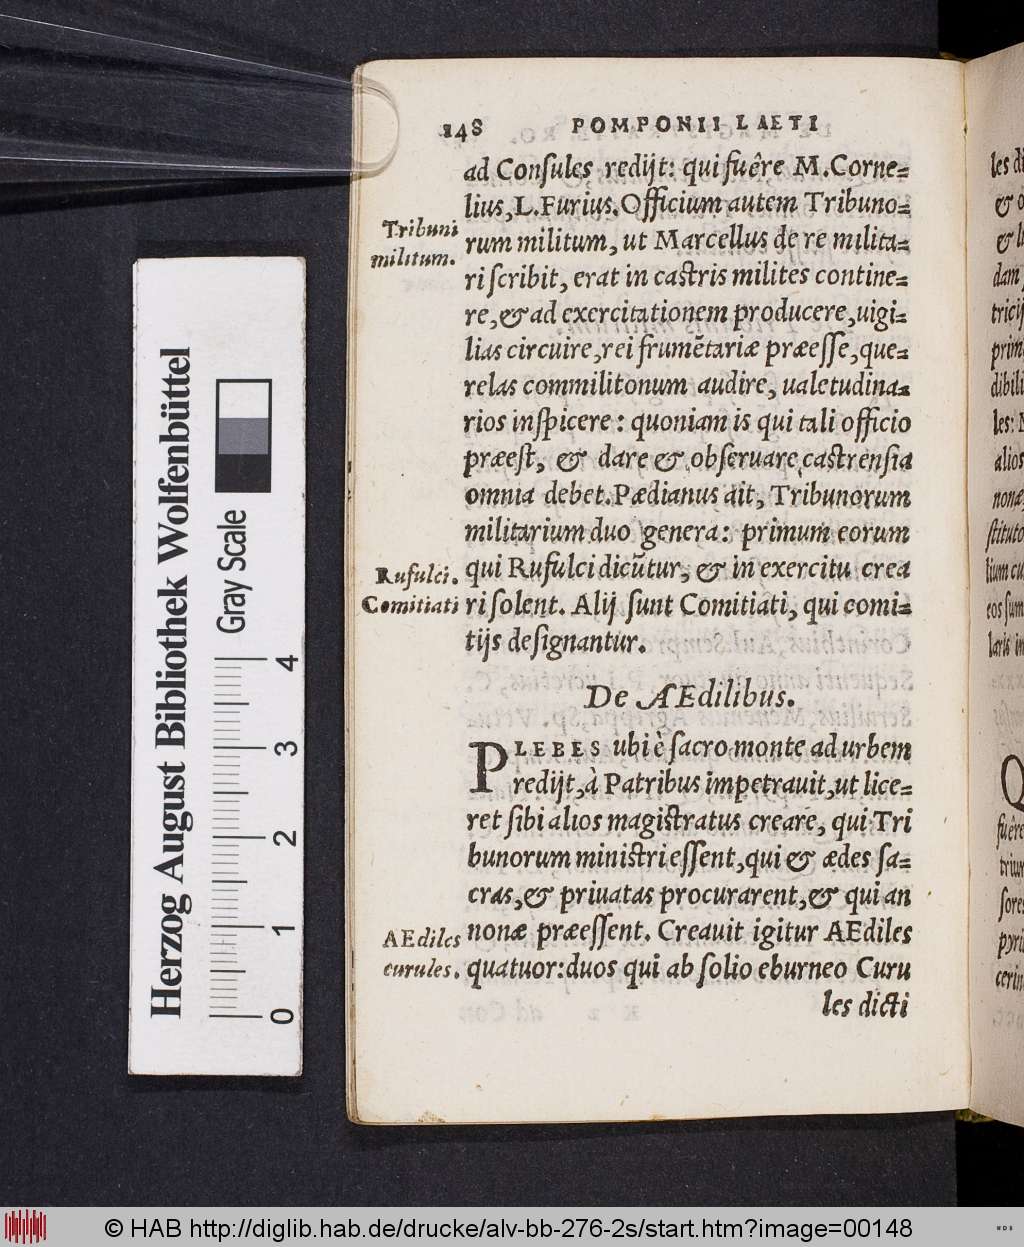 148 POMPONII LAETI
ad Consules redijt: qui fuêre M. Corne=
lius, L. Furius. Officium autem Tribuno=
Tribuni
militum.
rum militum, ut Marcellus de re milita=
ri scribit, erat in castris milites contine=
re, & ad exercitationem producere, uigi=
lias circuire, rei frumẽtariæ præesse, que=
relas commilitonum audire, ualetudina=
rios inspicere: quoniam is qui tali officio
præest, & dare & obseruare castrensia
omnia debet. Pædianus ait, Tribunorum
militarium duo genera: primum eorum
Rufulci.
Comitiati
qui Rufulci dicũtur, & in exercitu crea
ri solent. Alij sunt Comitiati, qui comi=
tijs designantur.
De AEdilibus.
PLEBES ubi è sacro monte ad urbem
redijt, à Patribus impetrauit, ut lice=
ret sibi alios magistratus creare, qui Tri
bunorum ministri essent, qui & ædes sa=
cras, & priuatas procurarent, & qui an
AEdiles
curules.
nonæ præessent. Creauit igitur AEdiles
quatuor: duos qui ab solio eburneo Curu
les dicti
Herzog August Bibliothek Wolfenbüttel
Gray Scale
0 1 2 3 4
© HAB http://diglib.hab.de/drucke/alv-bb-276-2s/start.htm?image=00148